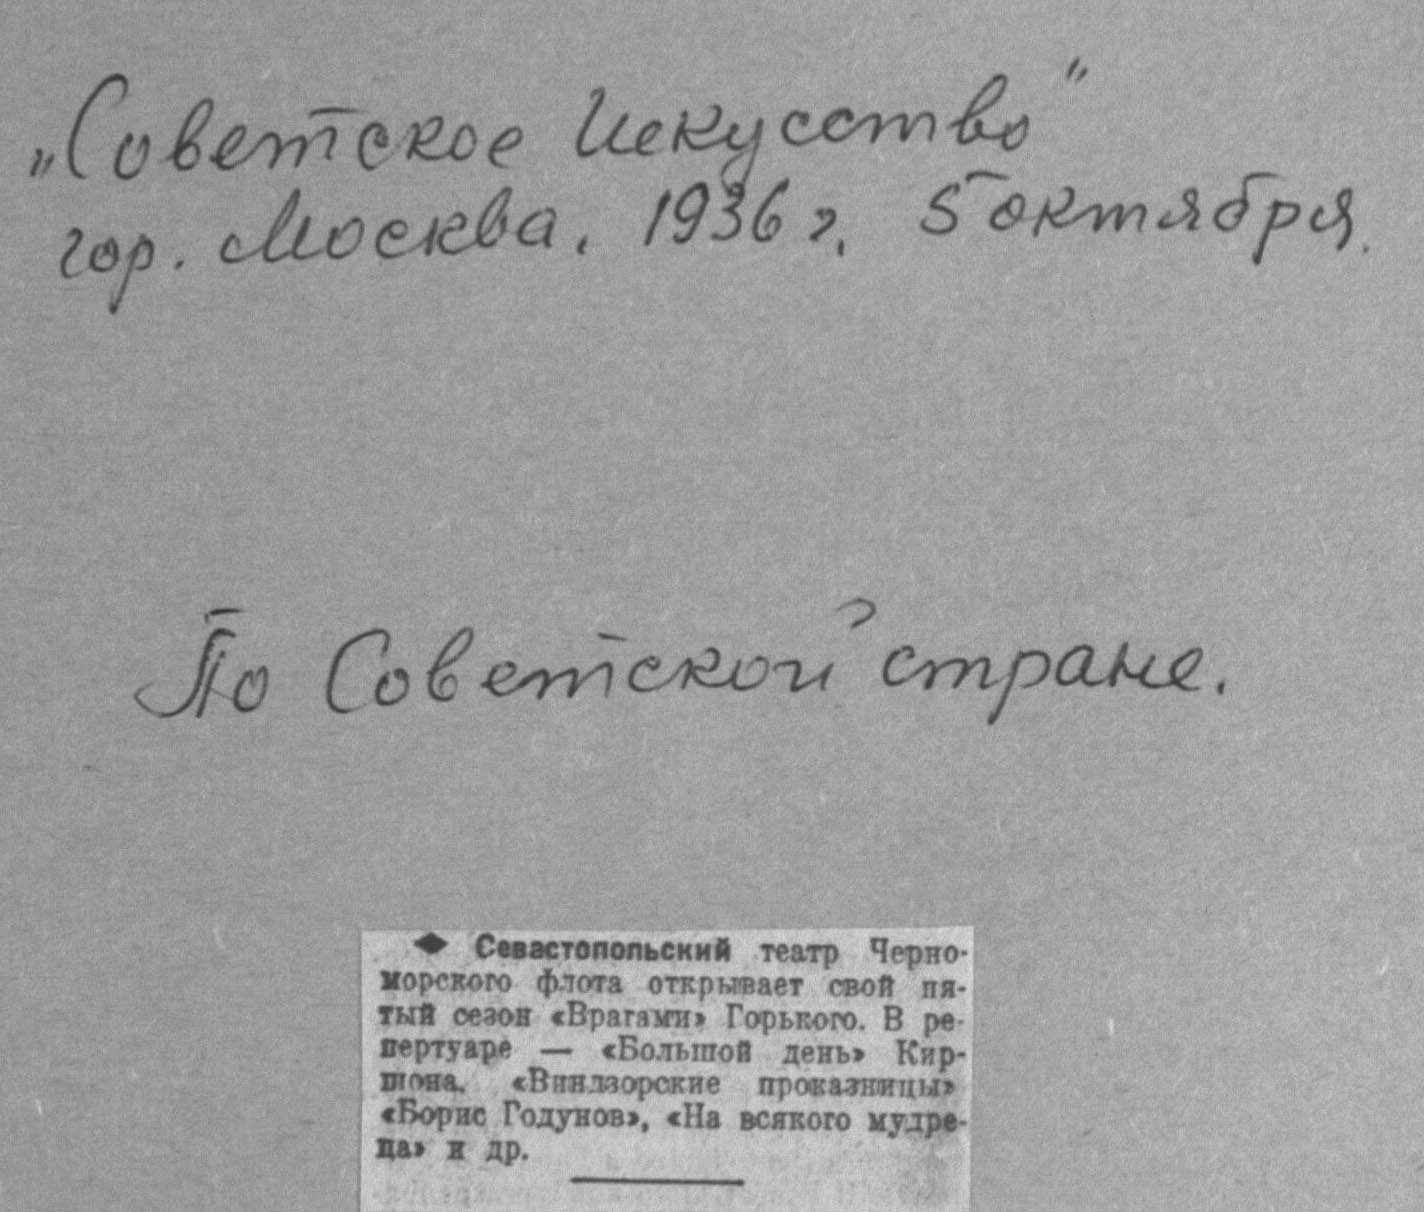 „Советское Искусство"
гор. Москва. 1936 г. 5 октября.
По Советской стране.
◆ Севастопольский театр Черно-
морского флота открывает свой пя-
тый сезон «Врагами» Горького. В ре-
пертуаре — «Большой день» Кир-
шона. «Виндзорские проказницы»
«Борис Годунов», «На всякого мудре-
ца» и др.